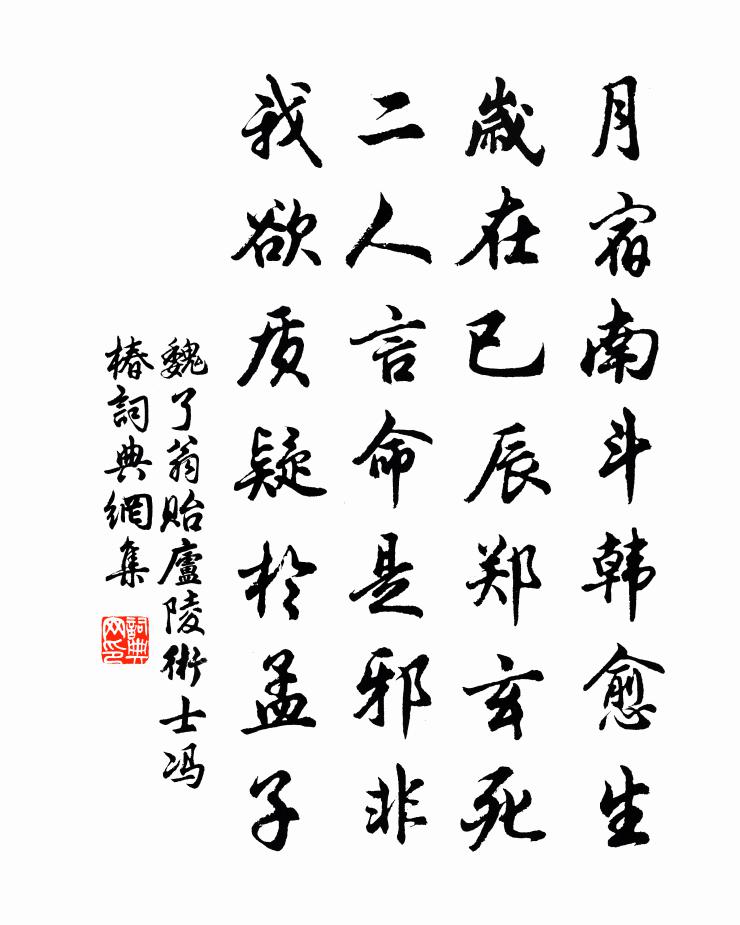 月宿南斗韩愈生
歳在已辰郑玄死
二人言命是邪非
我欲质疑於孟子
魏了翁贻廬陵術士冯
椿詞典網集
詞典网印